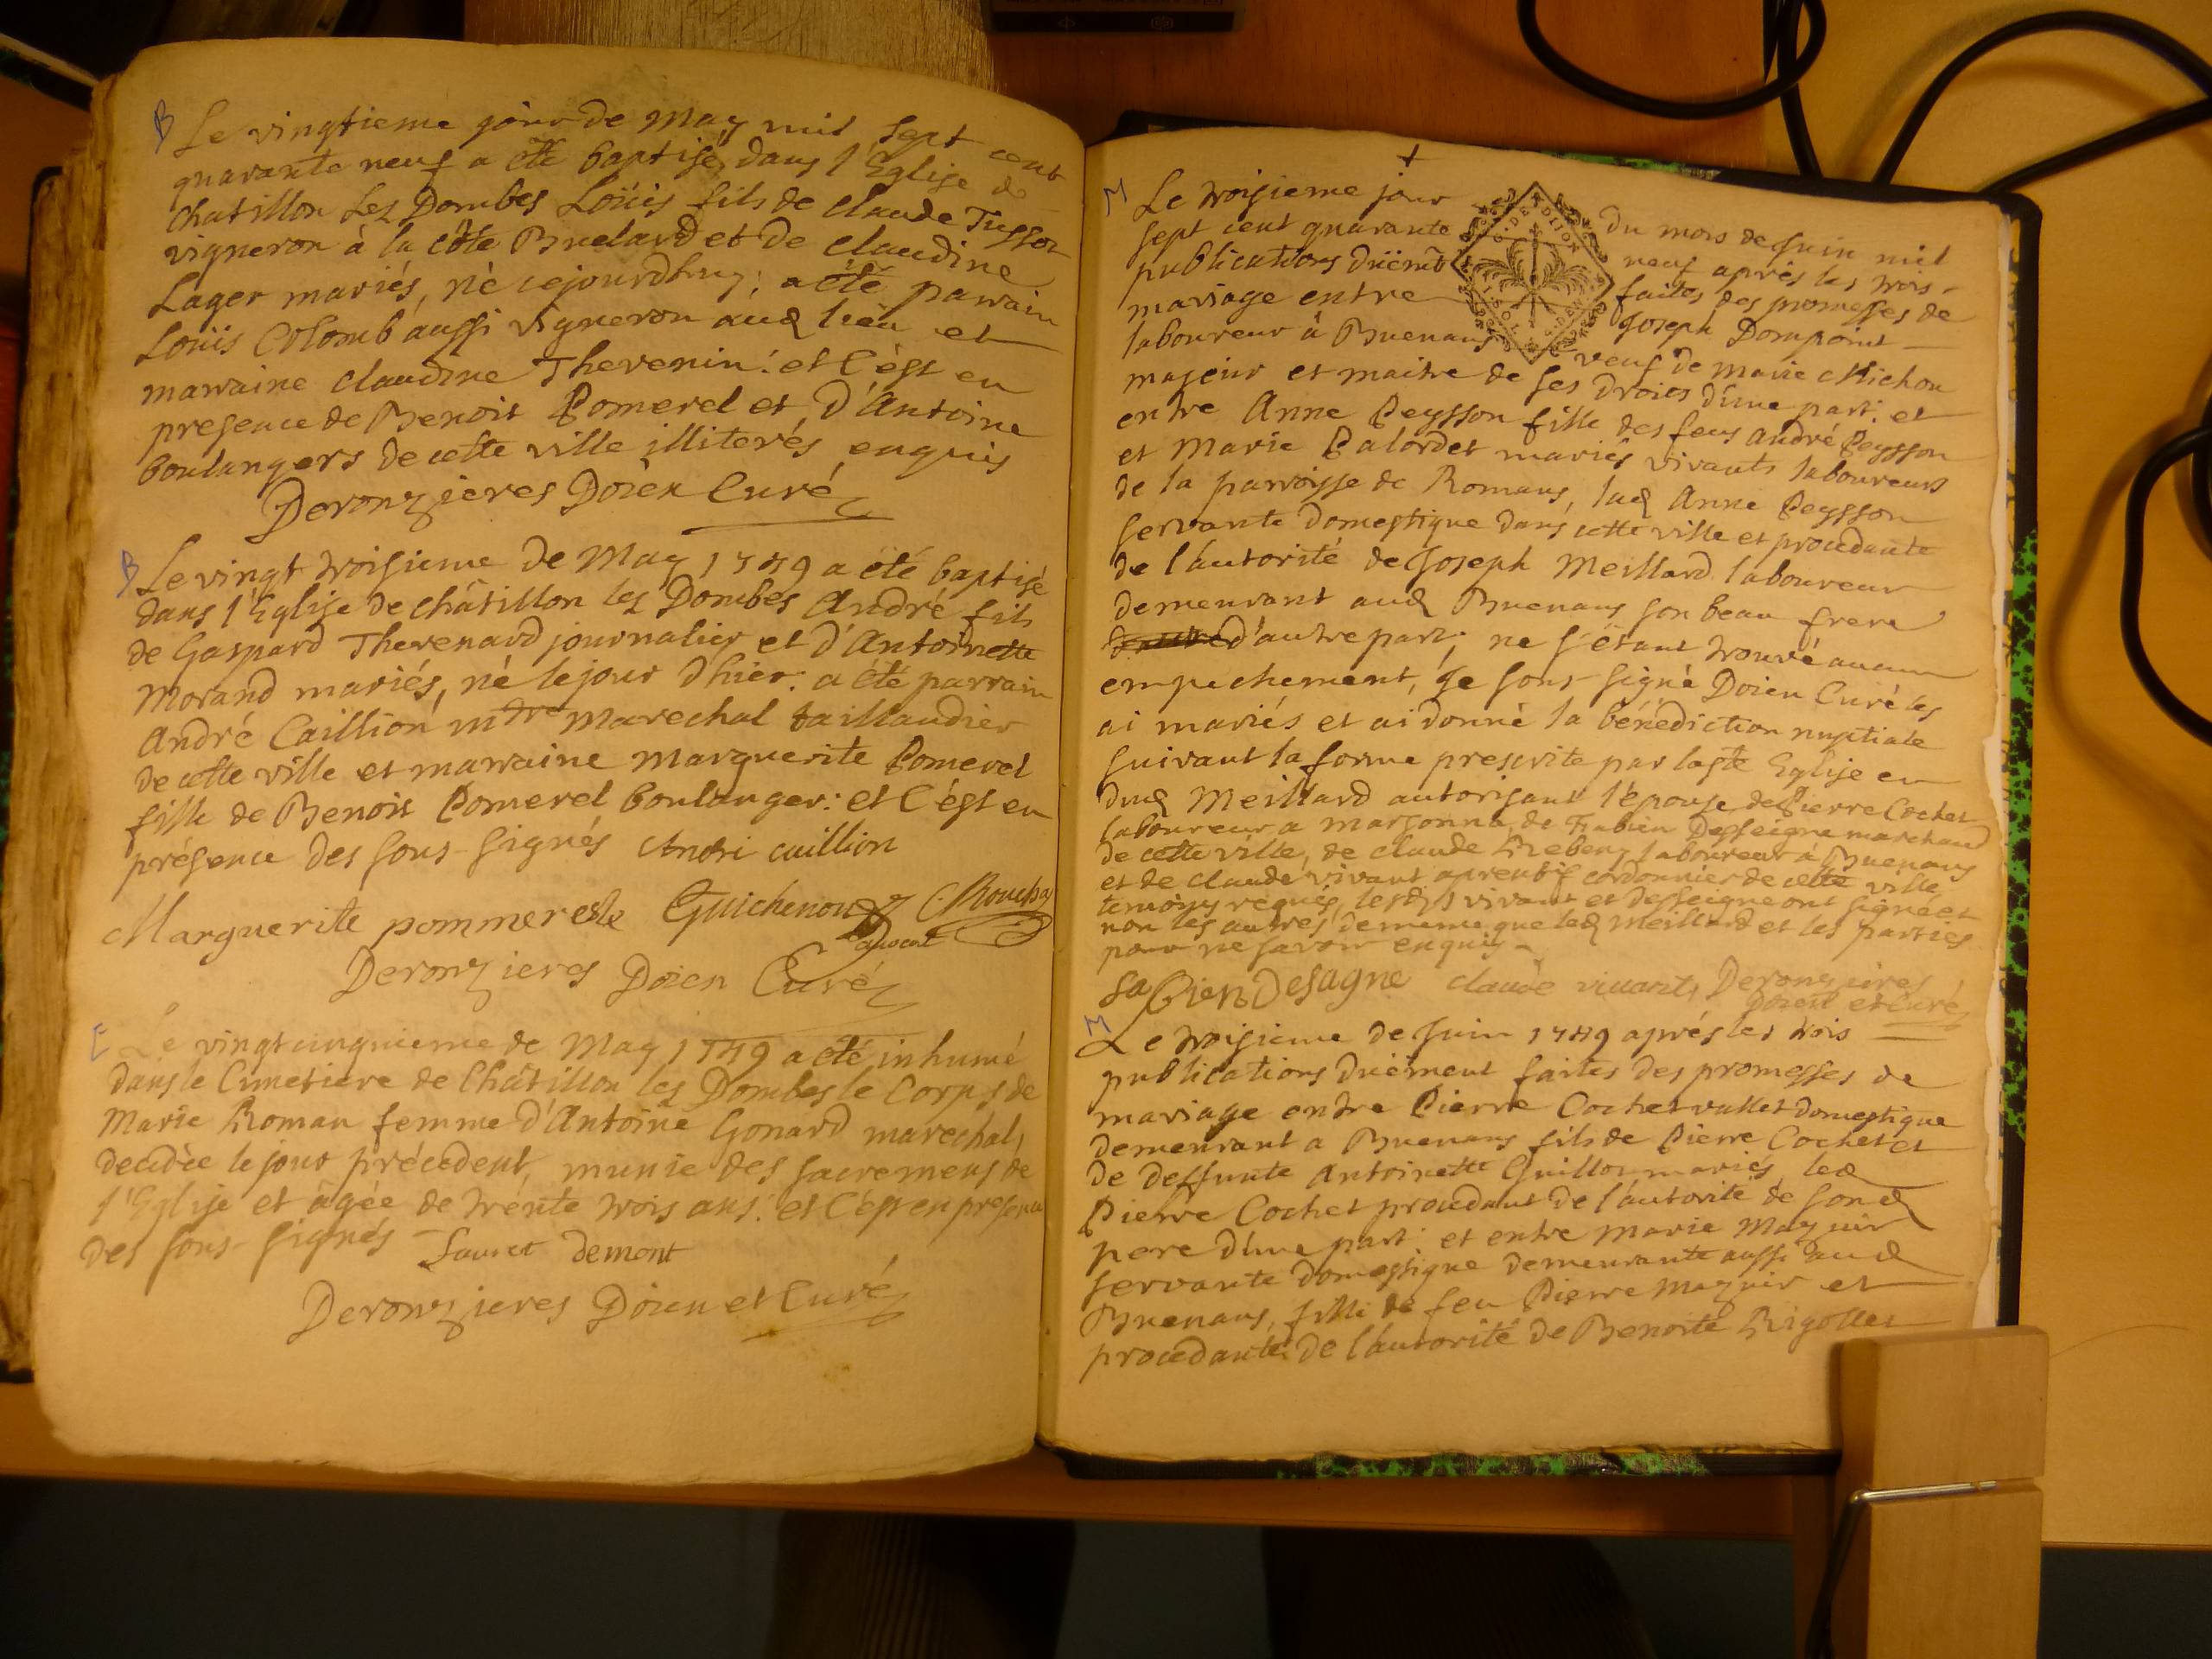 B
Le vingtieme jour de May mil sept cent
quarante neuf a été baptisé dans l'Eglise de
chatillon Lez Dombes Loüis fils de claude Tussot
vigneron à la côte Buelard et de claudine
Lager mariés, né cejourdhuy; a été parrain
Loüis Colomb aussi vigneron aud lieu et
marraine claudine Thevenin: et c'ést en
presence de Benoit Pomerel et D'Antoine
boulangers de cette ville illiterés enquis
Deronzieres Doïen Curé
B
Le vingt troisieme de May 1749 a été baptisé
dans l'Eglise de châtillon les Dombes André fils
de Gaspard Thevenard journalier et d'Antoinette
Morand mariés, né le jour d'hier: a été parrain
André Caillion mtre marechal taillandier
de cette ville et marraine Marguerite Pomerel
fille de Benoit Pomerel boulanger: et c'ést en
présence des sous-signés André caillion
Marguerite pommerelle Guichenon C. Rouchas
avocat
Deronzieres Doien Curé
E
Le vingt cinquieme de May 1749 a été inhumé
dans le Cimetiere de Châtillon les Dombes le Corps de
Marie Roman femme d'Antoine Gonard marechal,
decédée le jour précedent, munie des sacremens de
l'Eglise et âgée de trente trois ans: et c'ést en presence
des sous-signés Lauret demont
Deronzieres Doien et Curé
M
Le troisieme jour du mois de Juin mil
sept cent quarante neuf après les trois
publications düemt faites des promesses de
mariage entre Joseph Dompoint
laboureur à Buenans veuf de Marie Michon
majeur et maitre de ses droits d'une part: et
entre Anne Peysson fille des feus André Peysson
et Marie Palordet mariés vivants laboureurs
de la parroisse de Romans, lad Anne Peysson
servante domestique dans cette ville et procedante
de l'autorité de Joseph Meillard laboureur
demeurant aud Buenans son beau frere
d'autre part; ne s'étant trouvé aucun
empechement, Je sous-signé Doien Curé les
ai mariés et ai donné la bénediction nuptiale
suivant la forme prescrite par la ste Eglise en
dud Meillard autorisant l'épouse de Pierre Cochet
laboureur a marsonna, de Fabien Desseigne marchand
de cette ville, de claude Rebeny laboureur à Buenans
et de claude vivant aprentif cordonnier de cette ville
temoins requis, lesdts vivant et desseigne ont signé et
non les autres, de meme que led Meillard et les parties
pour ne savoir enquis
Fa bien Desagne claude vivant, Deronzieres
Doien et Curé
M
Le troisieme de Juin 1749 après les trois
publications düement faites des promesses de
mariage entre Pierre Cochet vallet domestique
demeurant a Buenans fils de Pierre Cochet et
de deffunte Antoinette Guillon mariés, led
Pierre Cochet procedant de l'autorité de sond
pere d'une part: et entre Marie Mazuir
servante domestique demeurante aussi aud
Buenans, fille de feu Pierre Mazuir et
procedante de l'autorité de Benoite Rigollet